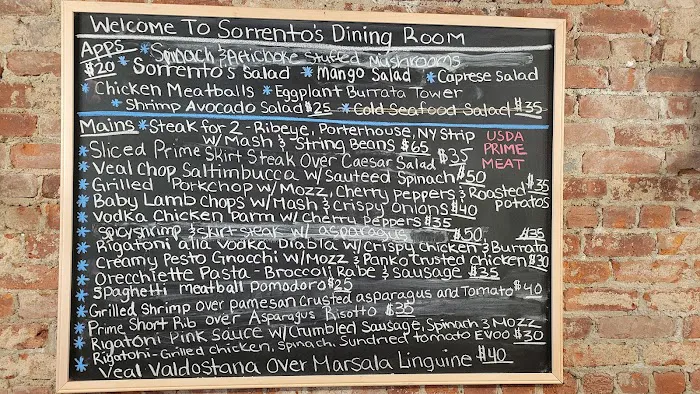 Welcome To Sorrento's Dining Room
Apps * Spinach & Artichoke Stuffed Mushrooms
$20 * Sorrento's Salad * Mango Salad * Caprese Salad
* Chicken Meatballs * Eggplant Burrata Tower
* Shrimp Avocado Salad $25 * Cold Seafood Salad $35
Mains * Steak for 2 - Ribeye, Porterhouse, NY Strip
w/Mash & String Beans $65
USDA PRIME MEAT
* Sliced Prime Skirt Steak Over Caesar Salad $35
* Veal Chop Saltimbucca w/ Sauteed Spinach $50
* Grilled Porkchop w/Mozz, Cherry peppers & Roasted potatos $35
* Baby Lamb Chops w/Mash & Crispy Onions $40
* Vodka Chicken Parm w/ Cherry Peppers $35
* Spicy shrimp & skirt steak w/ asparagus $50
* Rigatoni alla Vodka Diabla w/Crispy Chicken & Burrata $35
* Creamy Pesto Gnocchi w/Mozz & Panko Crusted Chicken $30
* Orecchiette Pasta - Broccoli Rabe & Sausage $35
* Spaghetti meatball pomodoro $25
* Grilled Shrimp over pamesan crusted asparagus and Tomato $40
* Prime Short Rib over Asparagus Risotto $35
* Rigatoni Pink Sauce w/Crumbled Sausage, Spinach & Mozz
* Rigatohi - Grilled Chicken, Spinach, Sundried tomato EVOO $30
* Veal Valdostana Over Marsala Linguine $40